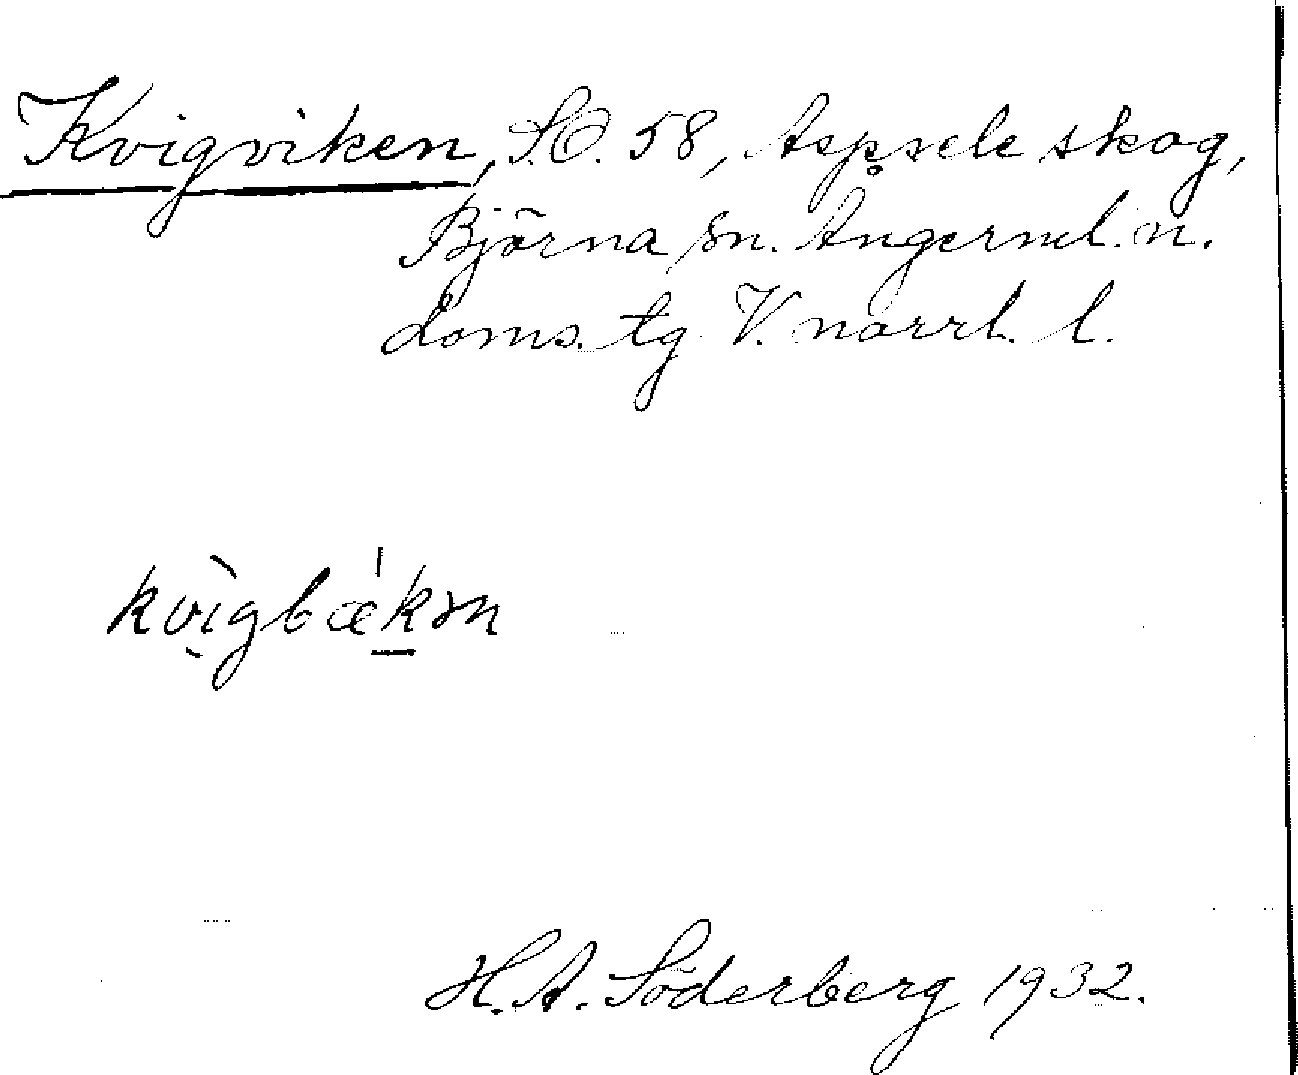 Kvigviken, S.O. 58, Aspsele skog,
Björna sn. Ångerml. n.
doms. tg. V. norrl. l.
kvìgbækən
H. A. Söderberg 1932.